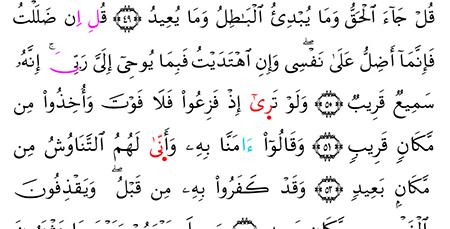 قُلۡ جَآءَ ٱلۡحَقُّ وَمَا يُبۡدِئُ ٱلۡبَٰطِلُ وَمَا يُعِيدُ ٤٩ قُلِ اِن ضَلَلۡتُ
فَإِنَّمَآ أَضِلُّ عَلَىٰ نَفۡسِيۖ وَإِنِ ٱهۡتَدَيۡتُ فَبِمَا يُوحِيٓ إِلَيَّ رَبِّيَۚ إِنَّهُۥ
سَمِيعٞ قَرِيبٞ ٥٠ وَلَوۡ تَرِىٰٓ إِذۡ فَزِعُواْ فَلَا فَوۡتَ وَأُخِذُواْ مِن
مَّكَانٖ قَرِيبٖ ٥١ وَقَالُوٓاْ ءَامَنَّا بِهِۦ وَأَنّىٰ لَهُمُ ٱلتَّنَاوُشُ مِن
مَّكَانِۭ بَعِيدٖ ٥٢ وَقَدۡ كَفَرُواْ بِهِۦ مِن قَبۡلُۖ وَيَقۡذِفُونَ